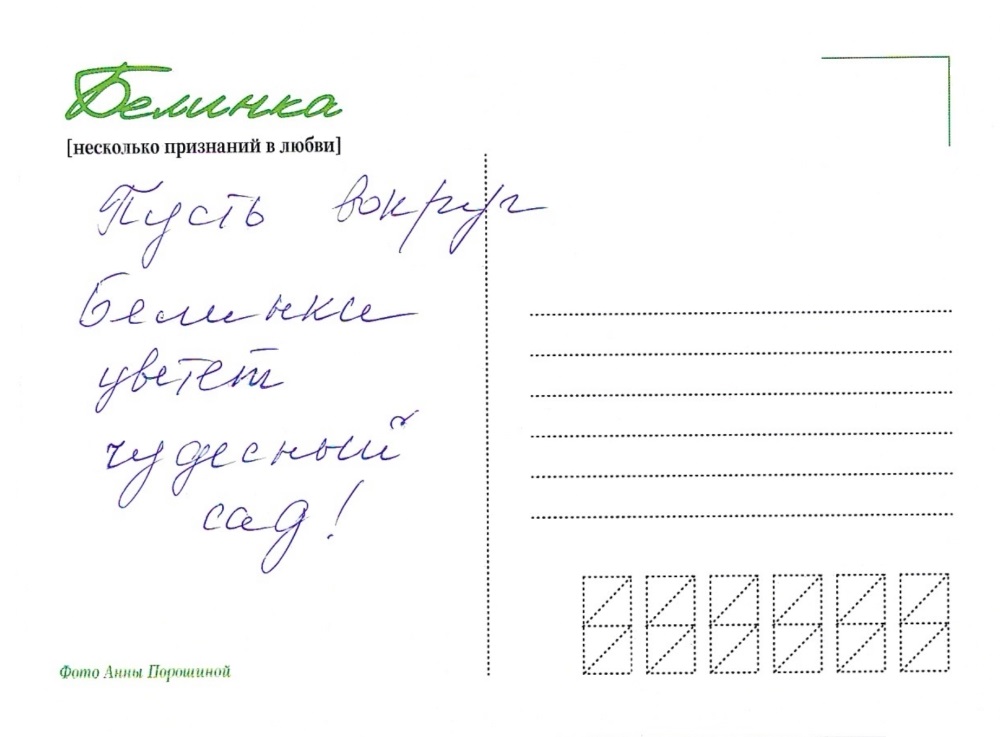 Белинка
[несколько признаний в любви]
Пусть вокруг
Белинки
цветет
чудесный
сад!
Фото Анны Порошиной